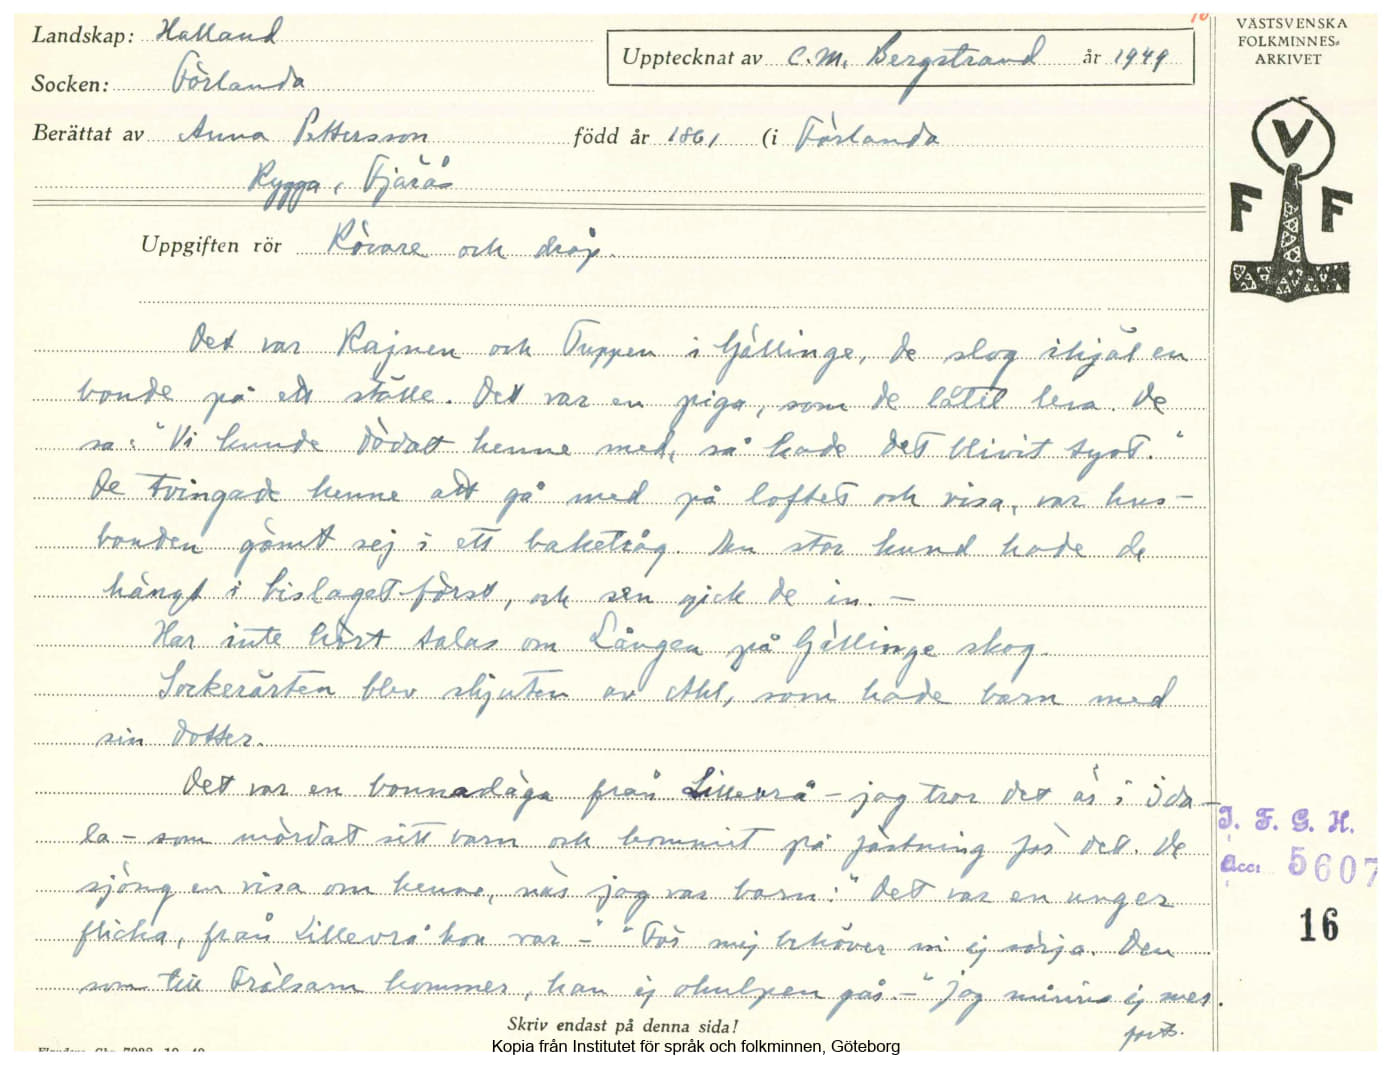 Landskap: Halland
Upptecknat av C. M. Bergstrand år 1949
VÄSTSVENSKA
FOLKMINNES-
ARKIVET
Socken: Förlanda
Berättat av Anna Pettersson född år 1861 (i Förlanda
Rygga, Fjärås
V
F F
Uppgiften rör Rövare och dråp.
Det var Kajnen och Tuppen i Gällinge, de slog ihjäl en
bonde på ett ställe. Det var en piga, som de lätit leva. De
sa: "Vi kunde dödat henne med, så hade det blivit tyst."
De tvingade henne att gå med på loftet och visa, var hus-
bonden gömt sej i ett baketråg. En stor hund hade de
hängt i bislaget först, och sen gick de in. —
Har inte hört talas om Lången på Gällinge skog.
Sockerärten blev skjuten av Ahl, som hade barn med
sin dotter.
Det var en bonnadåga från Lillevrå — jag tror det är i Ida-
la — som mördat sitt barn och kommit på fästning för det. De
sjöng en visa om henne, när jag var barn: "Det var en unger
flicka, från Lillevrå hon var —" "För mej behöver ni ej sörja. Den
som till Frälsarn kommer, han ej ohulpen går. —" Jag minns ej mer.
forts.
J. F. G. H.
Acc: 5607
16
Skriv endast på denna sida!
Kopia från Institutet för språk och folkminnen, Göteborg